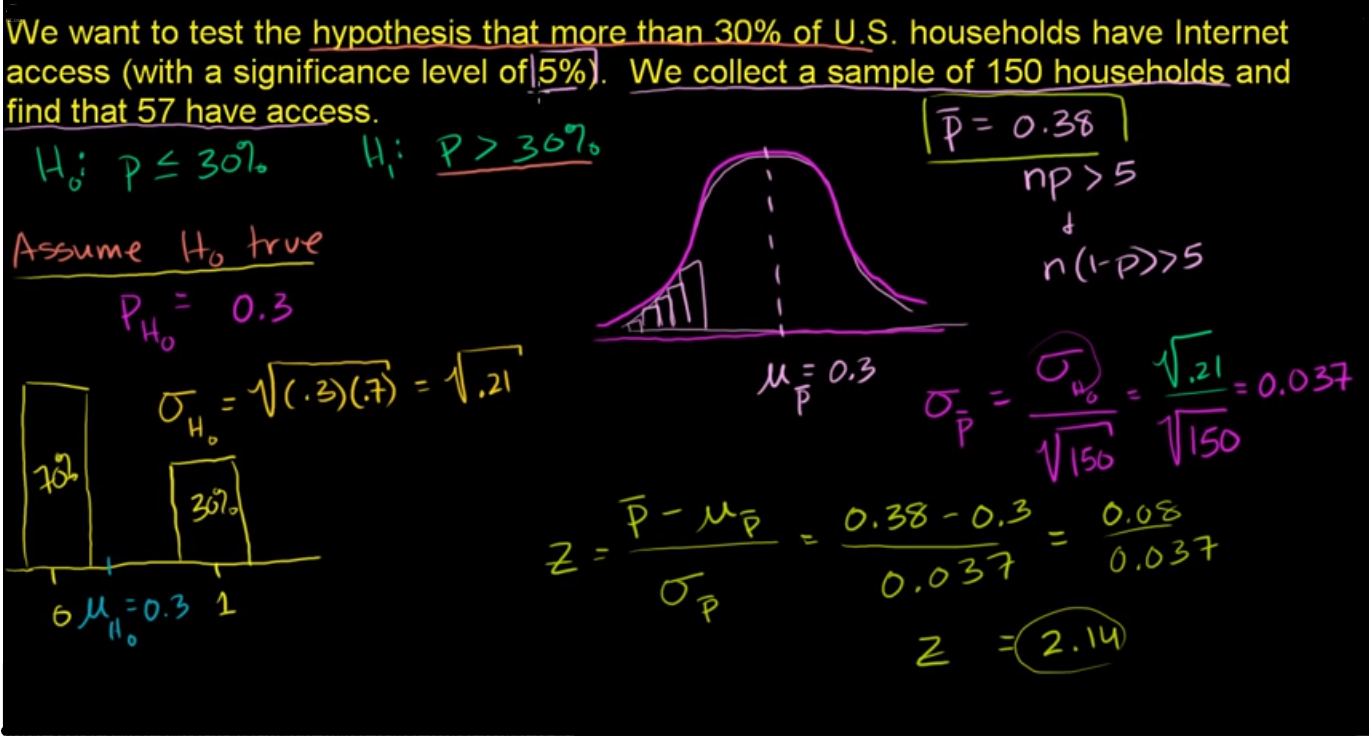 We want to test the hypothesis that more than 30% of U.S. households have Internet
access (with a significance level of 5%). We collect a sample of 150 households and
find that 57 have access.
H₀: p ≤ 30%   H₁: p > 30%   p̄ = 0.38
np > 5
&
n(1-p) > 5
Assume H₀ true
P_H₀ = 0.3
σ_H₀ = √(.3)(.7) = √.21
μ_p̄ = 0.3
σ_p̄ = σ_H₀/√150 = √.21/√150 = 0.037
70%   30%
0   μ_H₀ = 0.3   1
z = (p̄ - μ_p̄)/σ_p̄ = (0.38 - 0.3)/0.037 = 0.08/0.037
z = 2.14